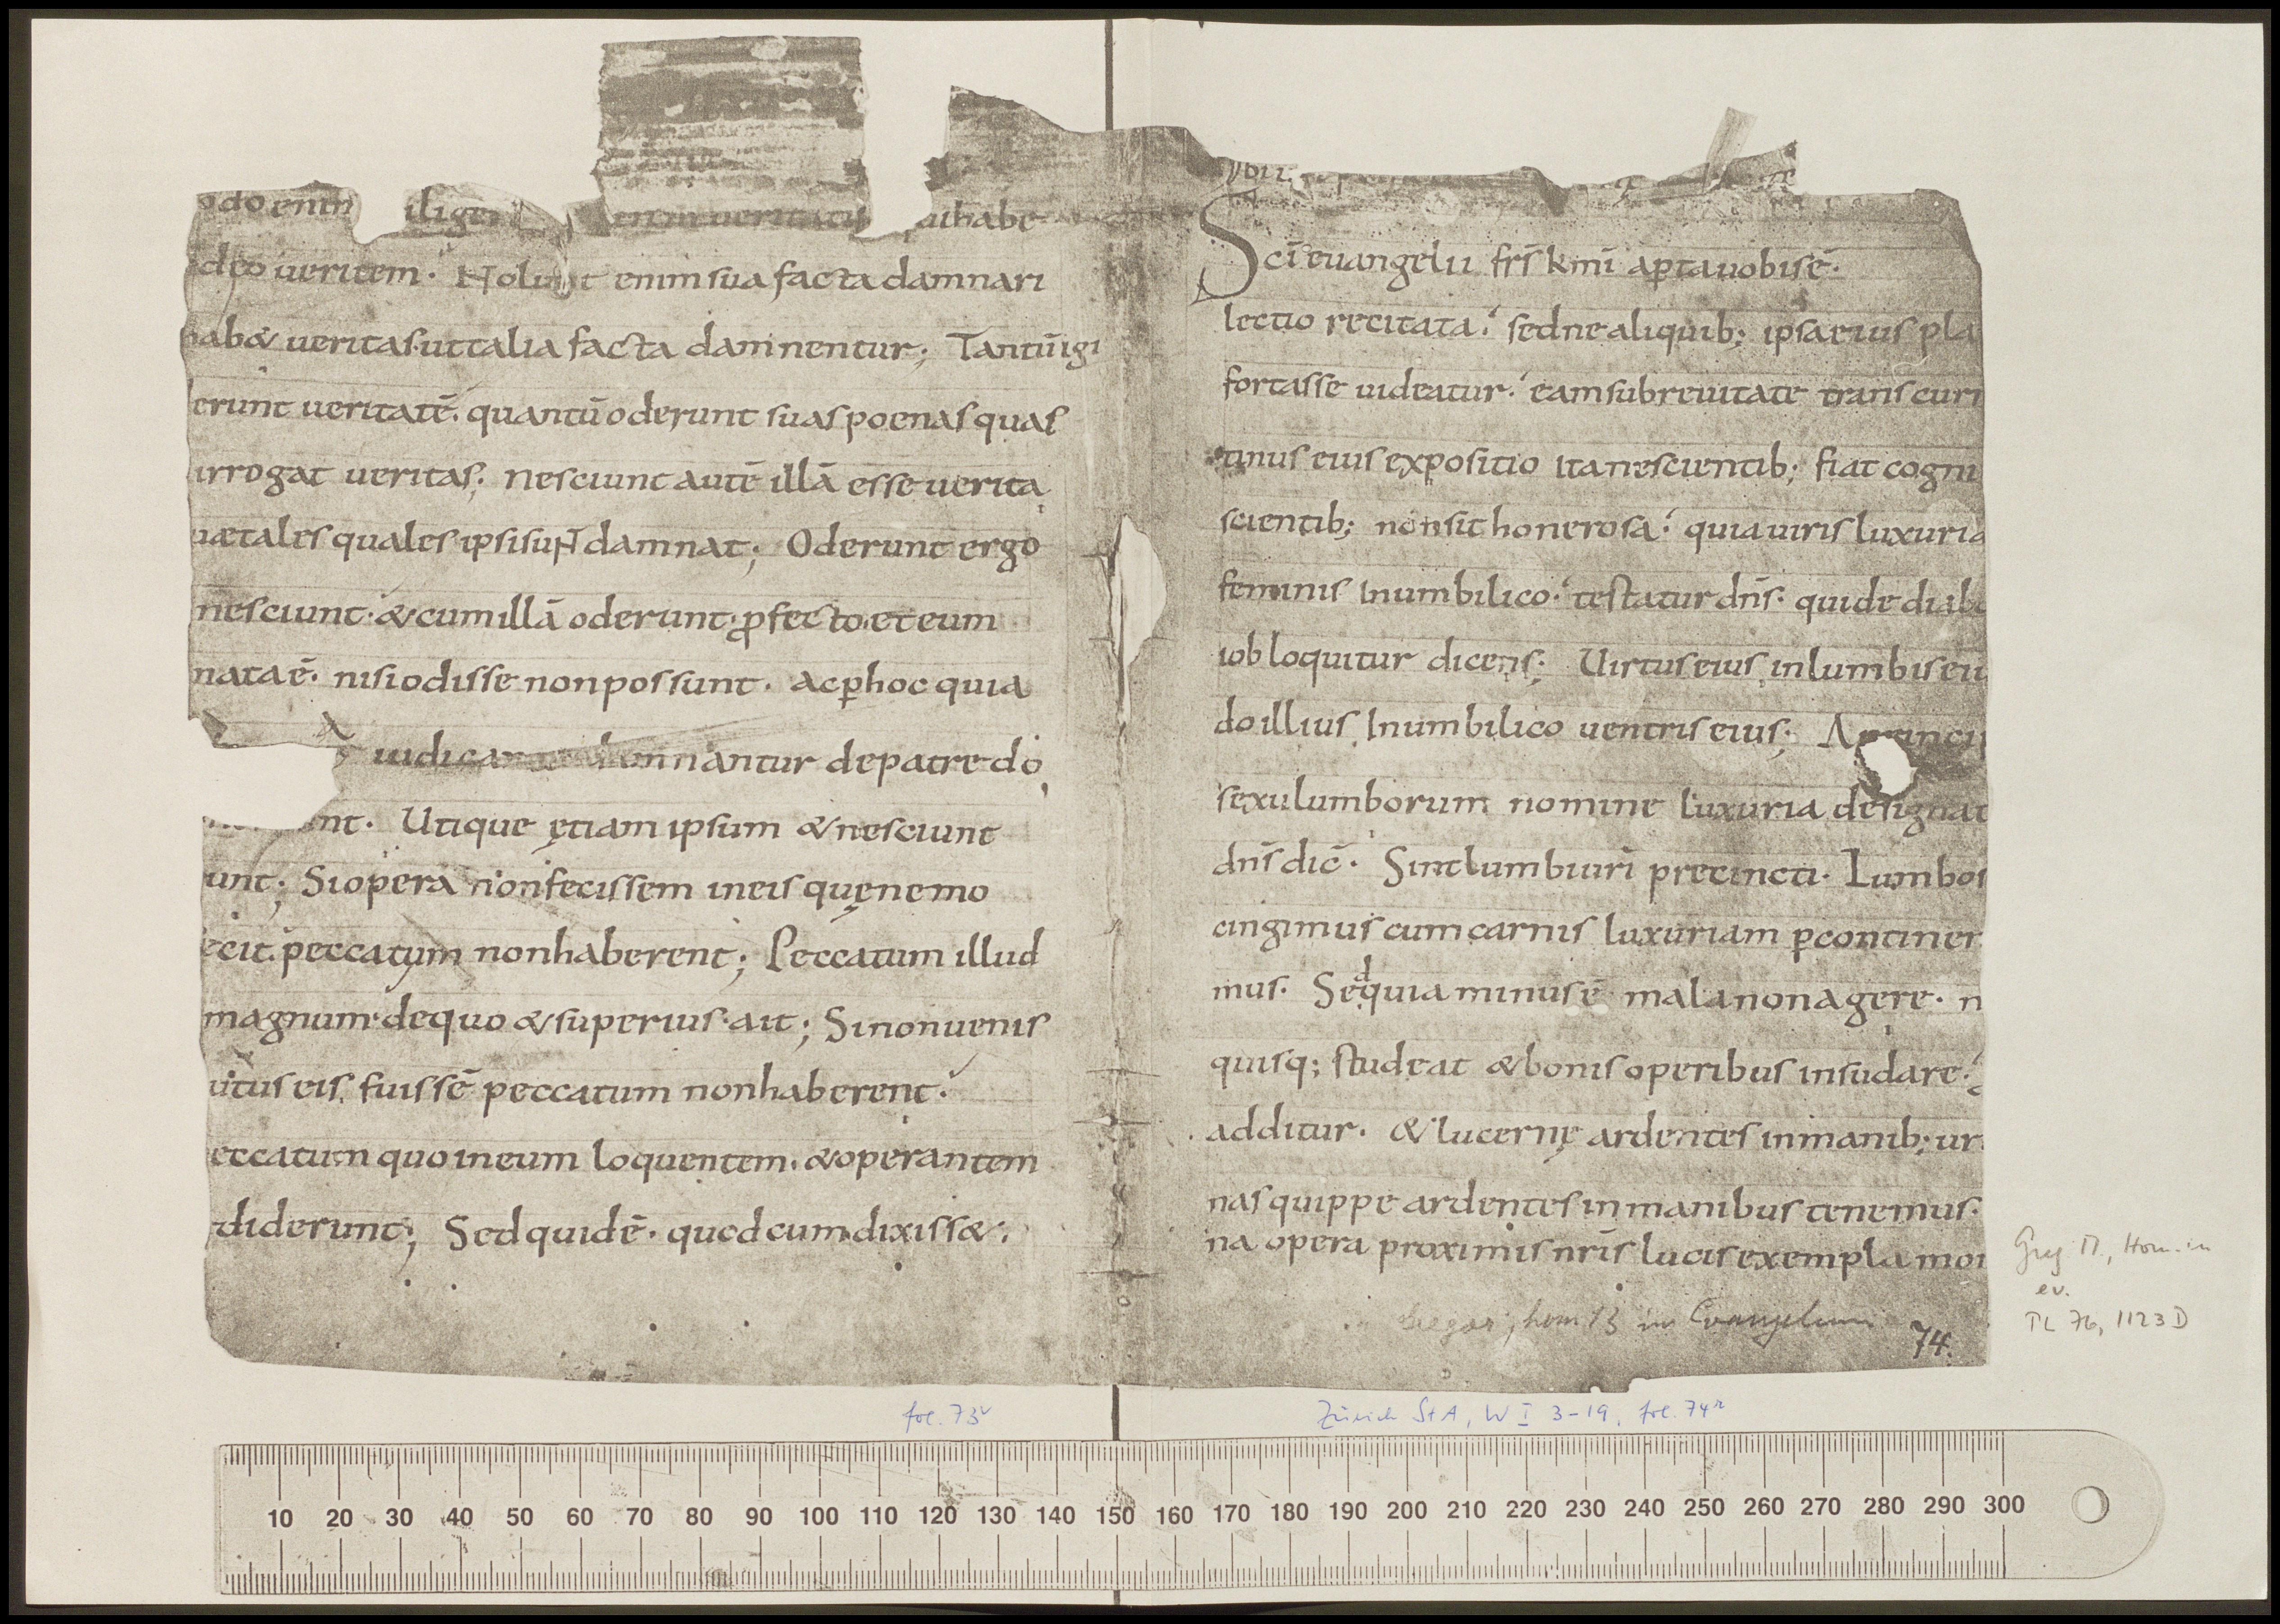 odo enim iligen enim ueritatis quihabe
ideo ueritem· Nolunt enim sua facta damnari
hab& ueritas· ut talia facta damnentur; Tantū igi
erunt ueritatē· quantū oderunt suas poenas quas
irrogat ueritas; nesciunt autē illā esse uerita
uae tales quales ipsi sunt damnat; Oderunt ergo
nesciunt· & cum illā oderunt· ꝓfecto et eum
nata ē· nisi odisse non possunt· ac ꝑ hoc quia
iudicar damnantur de patre do
nt· Utique ętiam ipsum & nesciunt
unt; Si opera non fecissem in eis quę nemo
ecit· peccatum non haberent; Peccatum illud
magnum· de quo & superius· ait; Si non uenis
utus eis· fuissē peccatum non haberent·
eccatum quo in eum loquentem· & operantem
diderunt; Sed quid ē· quod cum dixiss&;
Sc̄i euangelii fr̄s km̄i aꝑta uobis ē·
lectio recitata· sed ne aliquib; ipsa eius pla
fortasse uideatur· eam sub reuitate transcurr
tinus eius expositio ita nescientib; fiat cogni
scientib; non sit honerosa· quia uiris luxuria
feminis in umbilico· testatur dn̄s· qui de diabo
iob loquitur dicens; Uirtus eius in lumbis eiu
do illius in umbilico uentris eius; A princi
sexu lumborum nomine luxuria designat
dn̄s dic̄· Sint lumbi uri precincti· Lumbos
cingimus cum carnis luxuriam ꝑ continen
mus· Sed quia minus ē mala non agere· n
quisq; studeat & bonis operibus insudare·
additur· & lucernę ardentes in manib; ur
nas quippe ardentes in manibus tenemus·
na opera proximis nr̄is lucis exempla mon
Gregor, hom 13 in Evangelium
74.
Greg M., Hom. in
ev.
PL 76, 1123 D
fol. 73v
Zürich StA, W I 3-19, fol. 74r
10 20 30 40 50 60 70 80 90 100 110 120 130 140 150 160 170 180 190 200 210 220 230 240 250 260 270 280 290 300